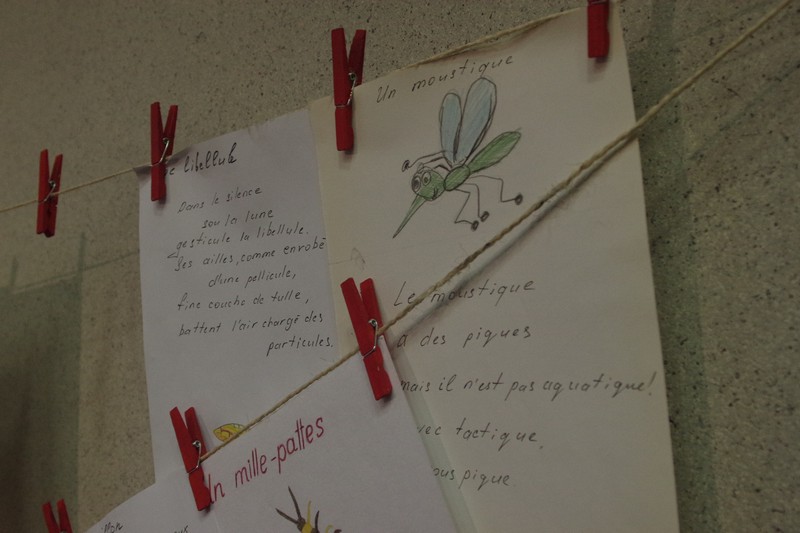 libellule
Dans le silence
sou la lune
gesticule la libellule.
Ses ailles, comme enrobé
d'une pellicule,
fine couche de tulle,
battent l'air chargé des
particules.
Un moustique
Le moustique
a des piques
mais il n'est pas aquatique!
tactique,
pique
Un mille-pattes